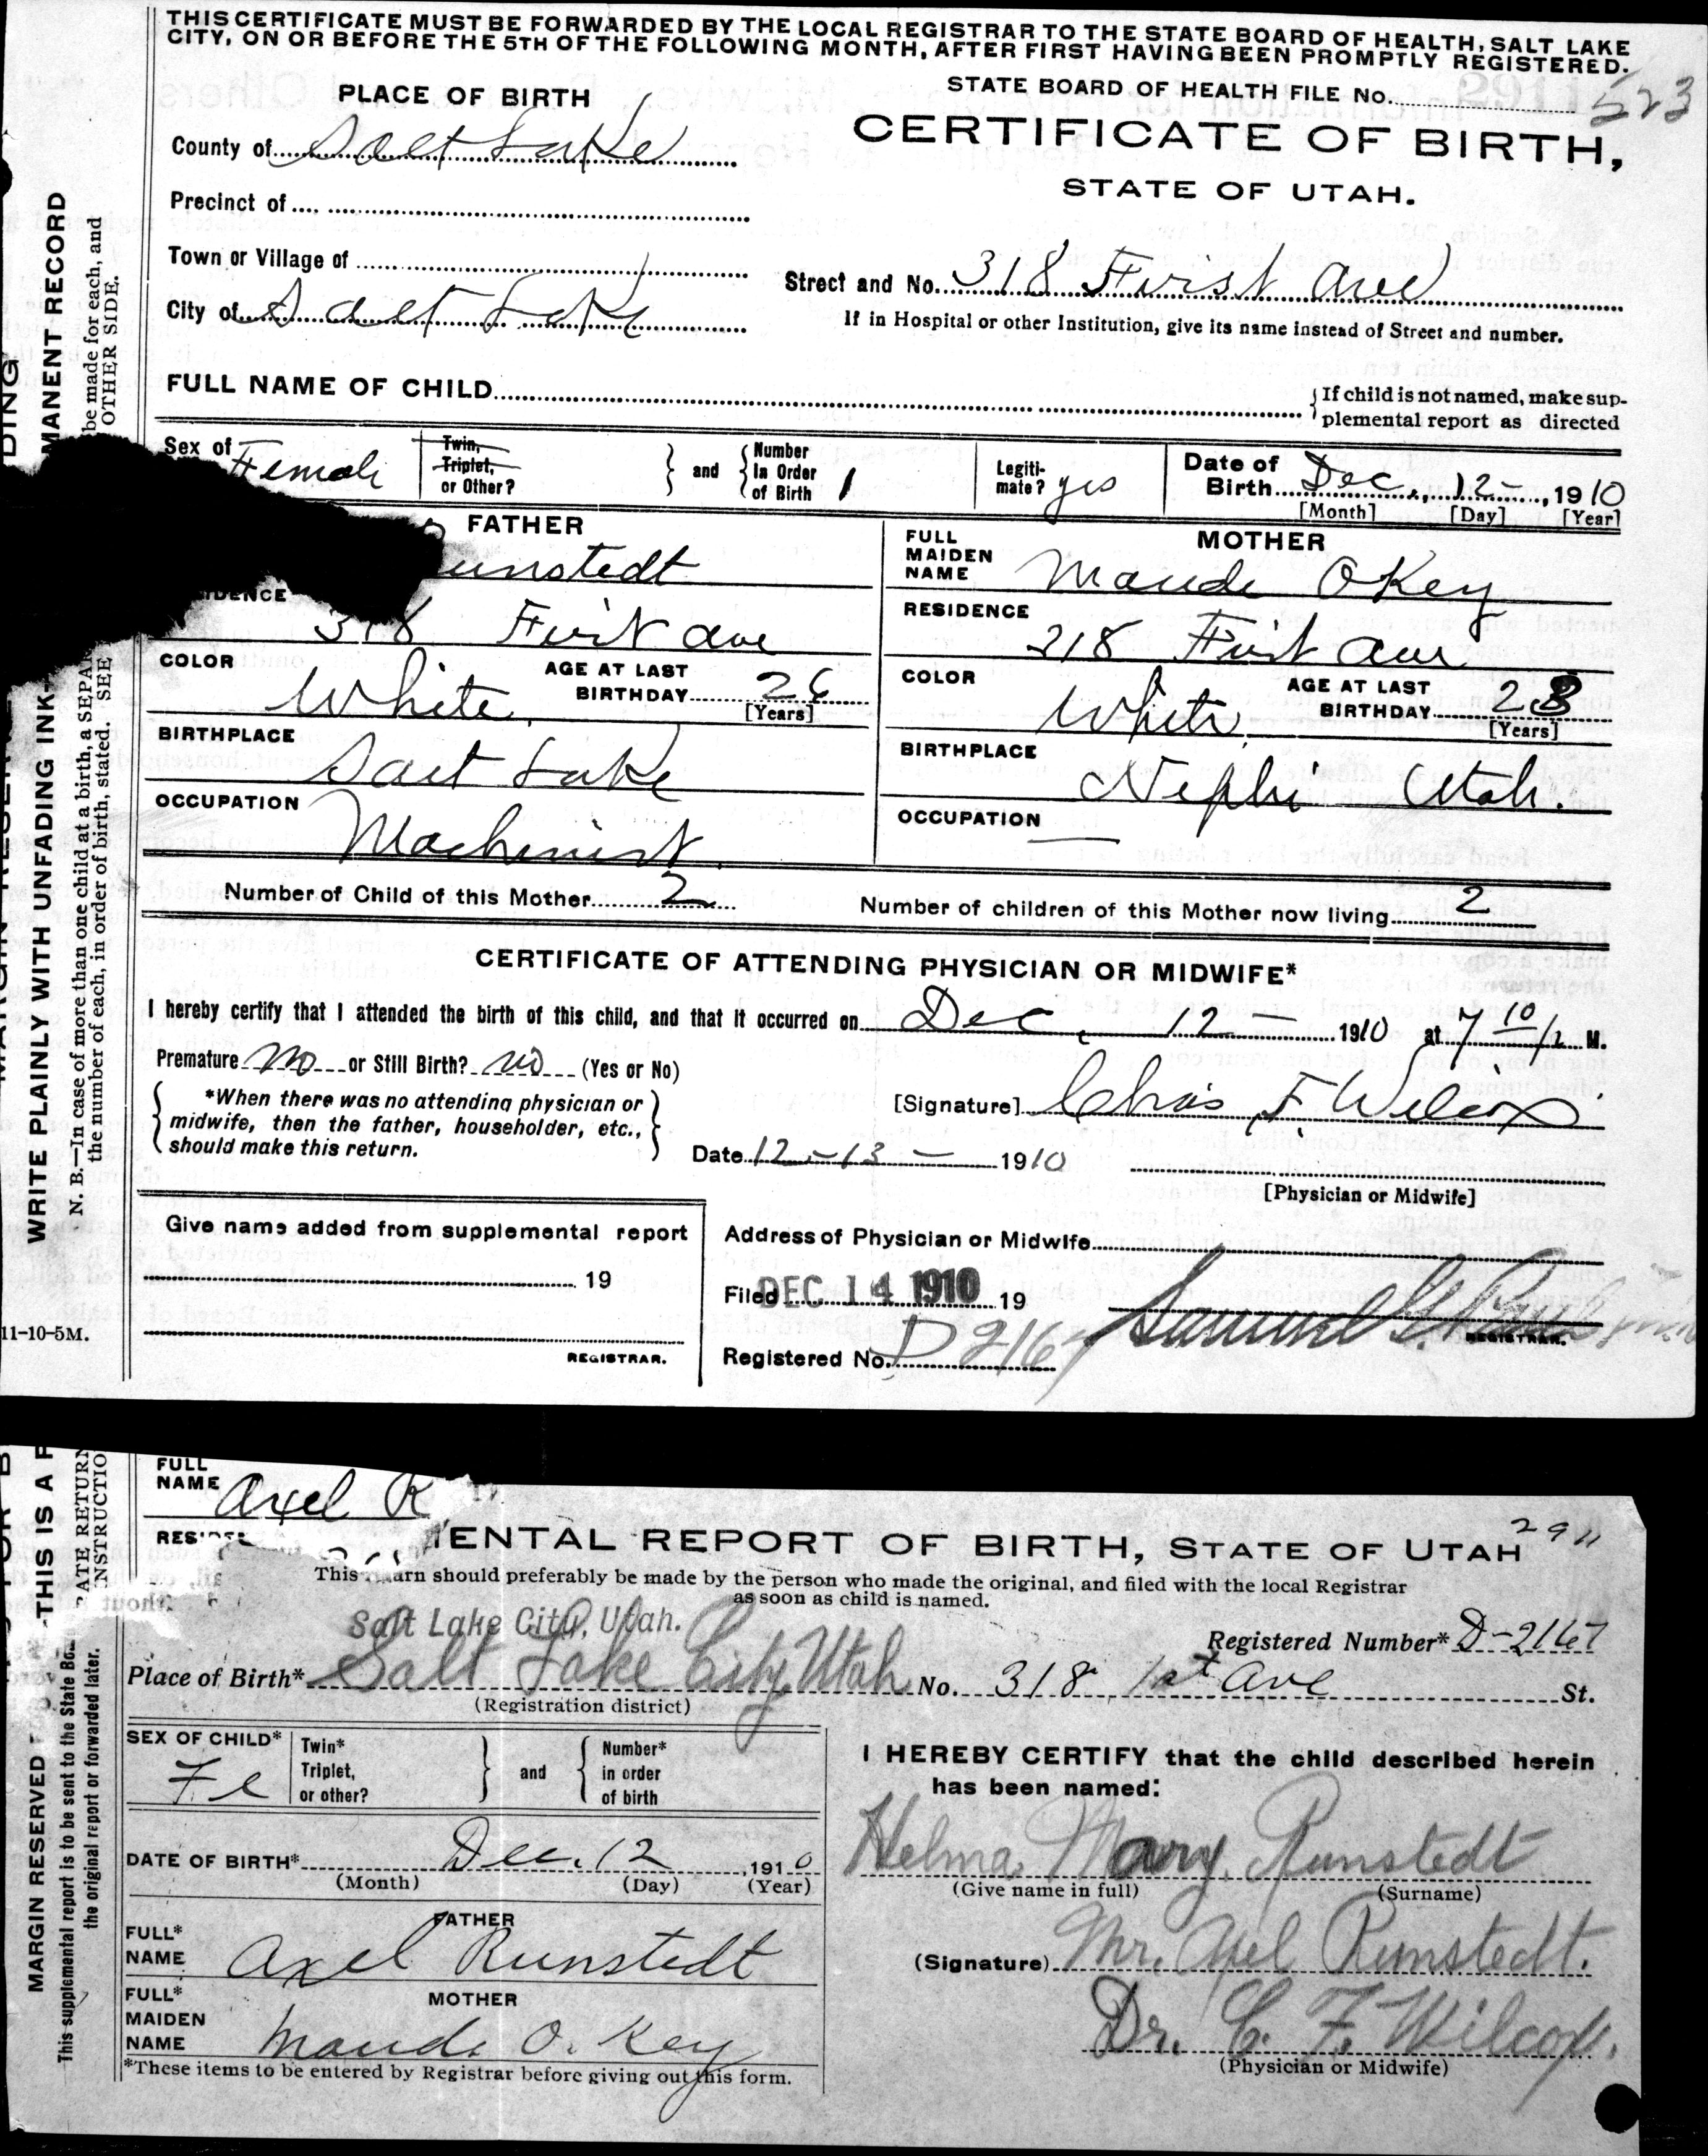 THIS CERTIFICATE MUST BE FORWARDED BY THE LOCAL REGISTRAR TO THE STATE BOARD OF HEALTH, SALT LAKE
CITY, ON OR BEFORE THE 5TH OF THE FOLLOWING MONTH, AFTER FIRST HAVING BEEN PROMPTLY REGISTERED.
STATE BOARD OF HEALTH FILE No. 523
PLACE OF BIRTH
CERTIFICATE OF BIRTH,
STATE OF UTAH.
County of Salt Lake
Precinct of
Town or Village of
Street and No. 318 First Ave
City of Salt Lake
If in Hospital or other Institution, give its name instead of Street and number.
FULL NAME OF CHILD
If child is not named, make sup-
plemental report as directed
Sex of Female
Twin,
Triplet,
or Other?
and
Number
In Order
of Birth 1
Legiti-
mate? yes
Date of
Birth Dec., 12-, 1910
[Month] [Day] [Year]
FATHER
unstedt
IDENCE
318 First ave
COLOR White
AGE AT LAST
BIRTHDAY 26
[Years]
BIRTHPLACE
Salt Lake
OCCUPATION
Machinist
MOTHER
FULL
MAIDEN
NAME Maude OKey
RESIDENCE
318 First Ave
COLOR White
AGE AT LAST
BIRTHDAY 28
[Years]
BIRTHPLACE
Nephi Utah.
OCCUPATION —
Number of Child of this Mother 2
Number of children of this Mother now living 2
CERTIFICATE OF ATTENDING PHYSICIAN OR MIDWIFE*
I hereby certify that I attended the birth of this child, and that it occurred on Dec, 12 - 1910 at 7 10 M.
Premature no or Still Birth? no (Yes or No)
*When there was no attending physician or
midwife, then the father, householder, etc.,
should make this return.
[Signature] Chas F. Wilcox
Date 12-13- 1910
[Physician or Midwife]
Give name added from supplemental report
19
REGISTRAR.
Address of Physician or Midwife
Filed DEC 14 1910 19
Samuel G. Paul
REGISTRAR.
Registered No. D 2167
11-10-5M.
MANENT RECORD
be made for each, and
OTHER SIDE.
WRITE PLAINLY WITH UNFADING INK-
N. B.—In case of more than one child at a birth, a SEPAR
the number of each, in order of birth, stated. SEE
FULL
NAME Axel R
THIS IS A
ATE RETURN
INSTRUCTIO
ENTAL REPORT OF BIRTH, STATE OF UTAH 2911
This return should preferably be made by the person who made the original, and filed with the local Registrar
as soon as child is named.
Salt Lake City, Utah.
Registered Number* D-2167
Place of Birth* Salt Lake City, Utah No. 318 1st Ave St.
(Registration district)
SEX OF CHILD*
Fe
Twin*
Triplet,
or other?
and
Number*
in order
of birth
DATE OF BIRTH* Dec. 12 1910
(Month) (Day) (Year)
FATHER
FULL*
NAME Axel Runstedt
MOTHER
FULL*
MAIDEN
NAME Maude O. Key
*These items to be entered by Registrar before giving out this form.
I HEREBY CERTIFY that the child described herein
has been named:
Helma Mary Runstedt
(Give name in full) (Surname)
(Signature) Mr. Axel Runstedt.
Dr. C. F. Wilcox.
(Physician or Midwife)
MARGIN RESERVED
This supplemental report is to be sent to the State Bo
the original report or forwarded later.